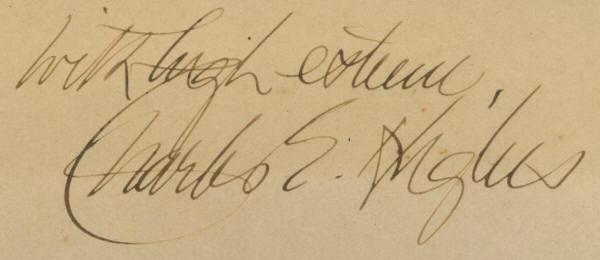 With high esteem,
Charles E. Hughes